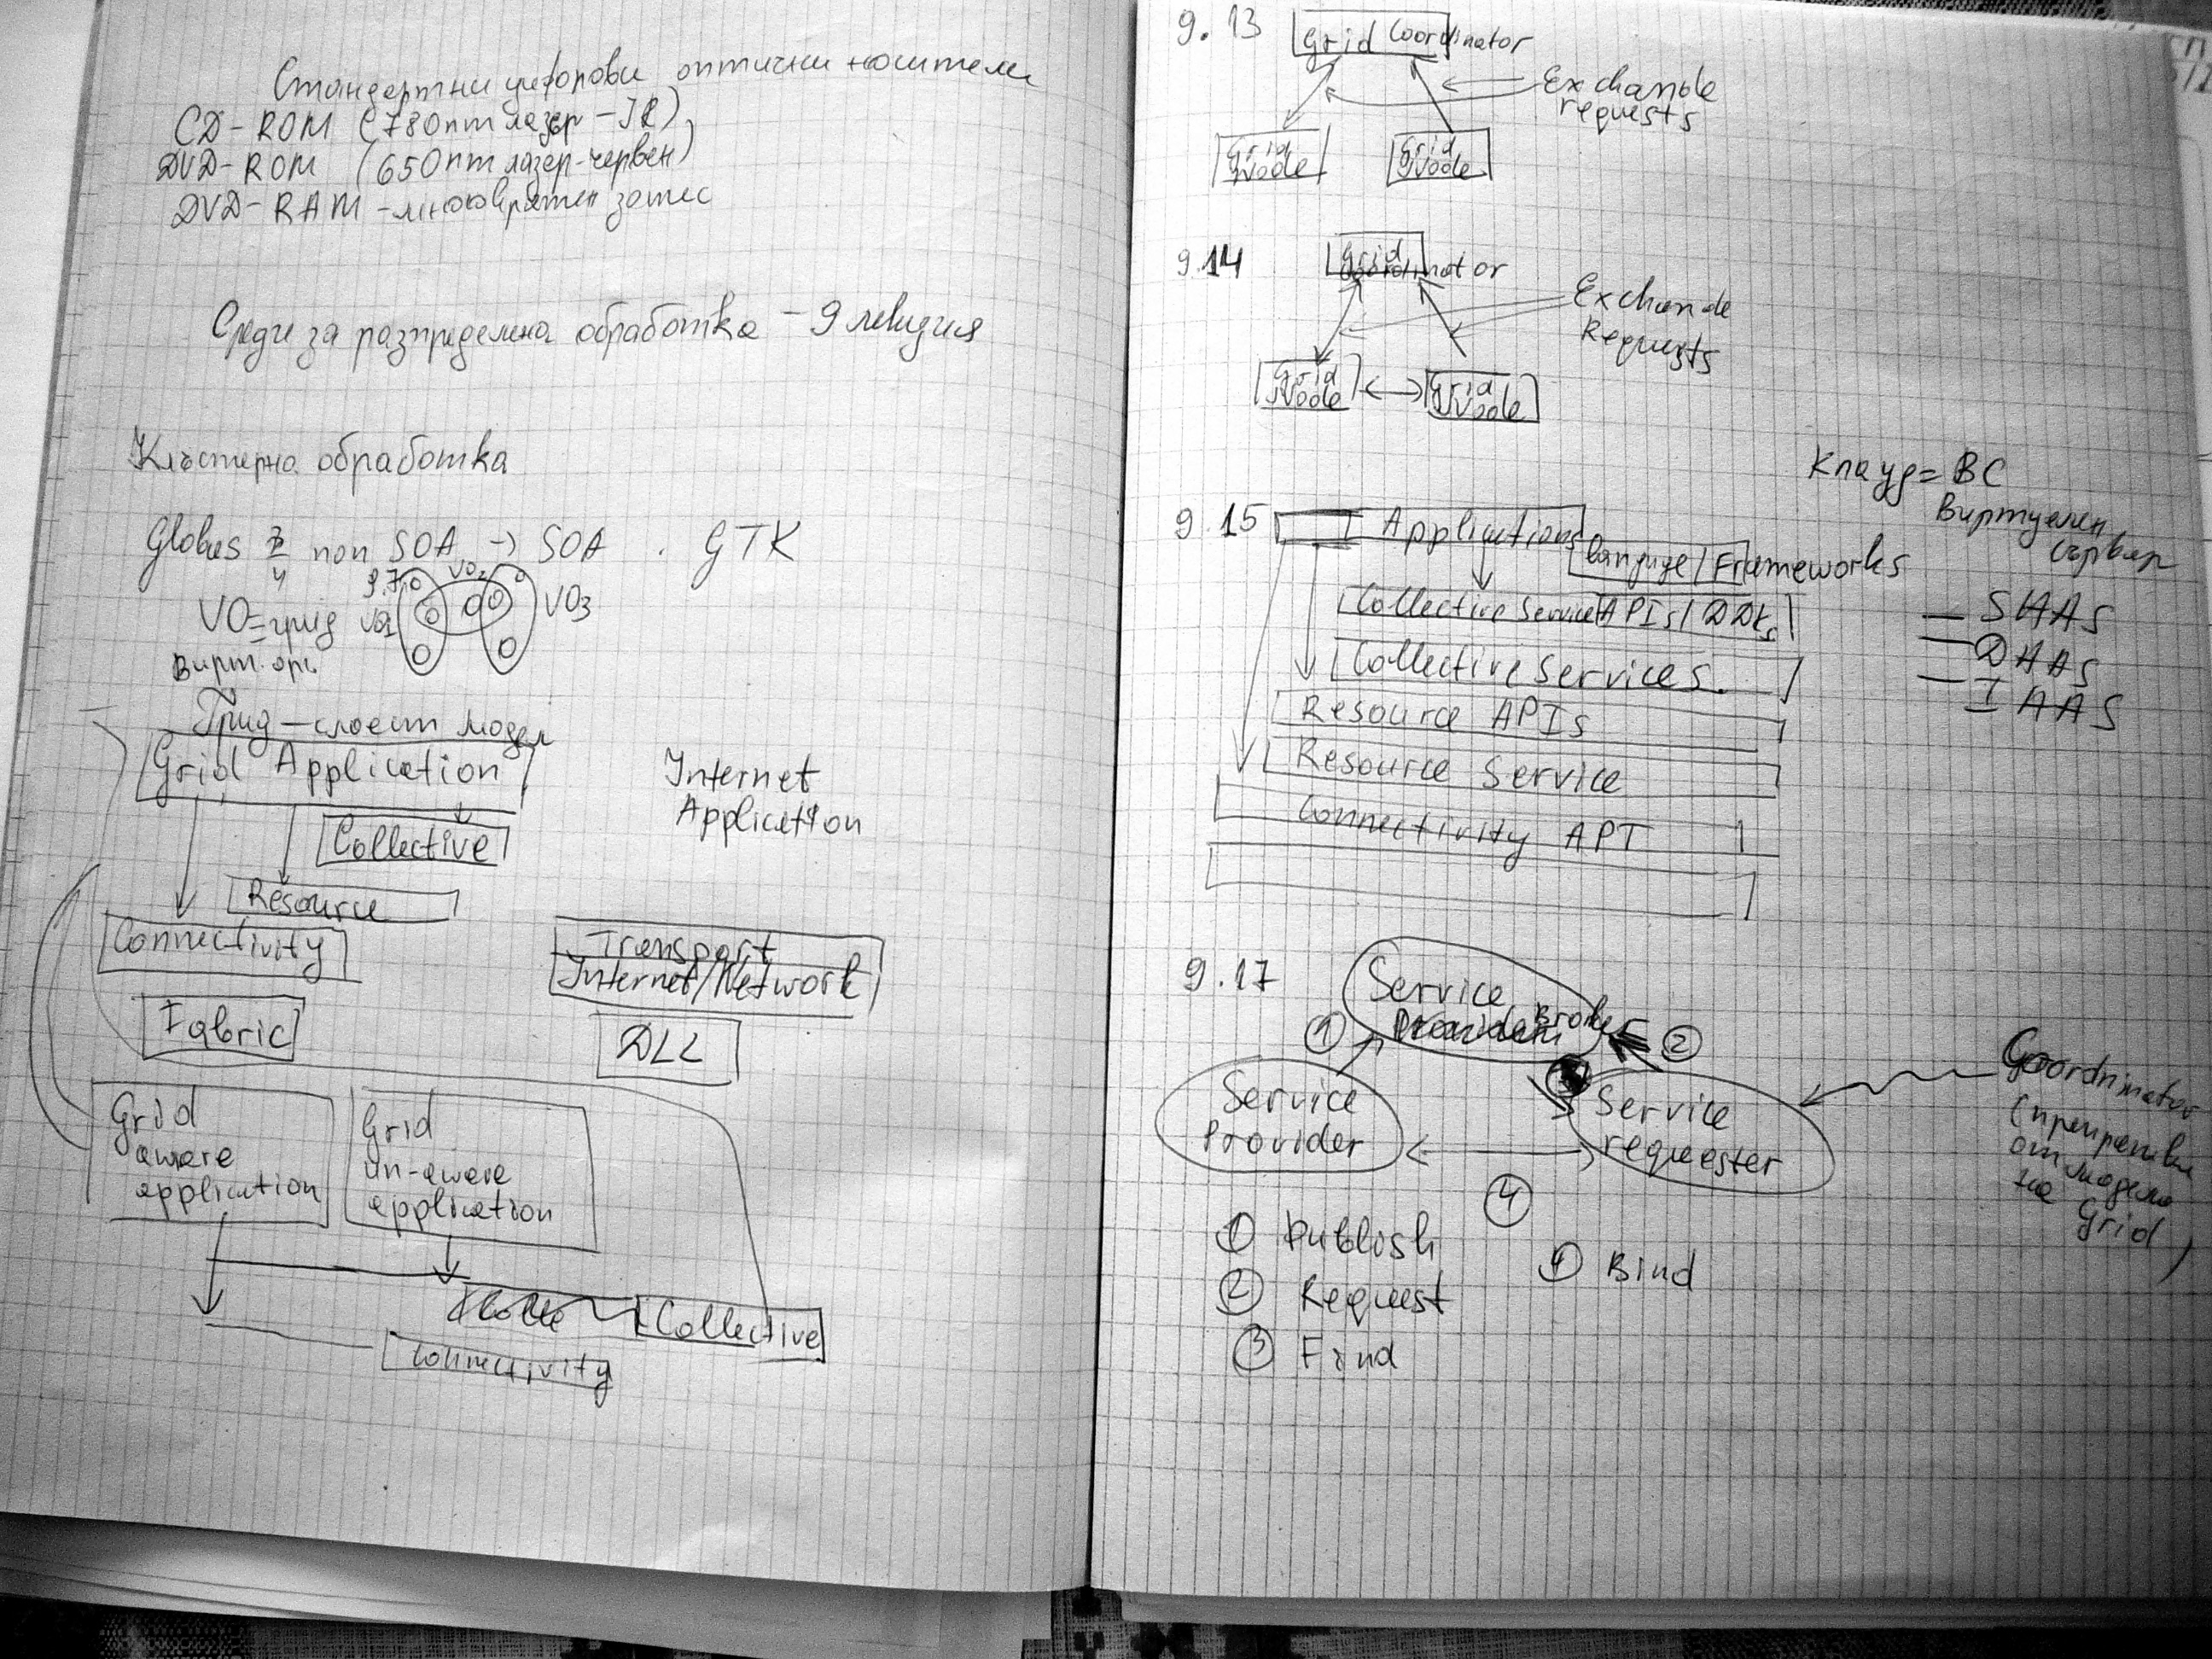 Стандартни цифрови оптични носители
CD-ROM (780nm лазер - IR)
DVD-ROM (650nm лазер-червен)
DVD-RAM - многократен запис
Среди за разпределена обработка - 9 лекция
Клъстерна обработка
Globus 3 non SOA → SOA . GTK
4
9.7
VO2
VO=грид VO1 VO3
Вирт. орг.
Грид - слоест модел
Grid Application
Internet
Application
Collective
Resource
Connectivity
Transport
Internet/Network
Fabric
DLL
Grid
aware
application
Grid
un-aware
application
Collective
Connectivity
9.13 Grid Coordinator
Exchanble
requests
Grid
Node
Grid
Node
9.14 Grid
Coordinator
Exchande
Requests
Grid
Node
Grid
Node
Клауд = ВС
Виртуален
сървър
— SAAS
— DAAS
— IAAS
9.15 Applications
Languge/Frameworks
Collective Service APIs/DDKs
Collective Services.
Resource APIs
Resource Service
Connectivity API
9.17 Service
Broker
1
2
Service
Provider
Service
requester
4
Coordinator
(
от модела
на Grid)
1 Publish
2 Request
3 Find
4 Bind